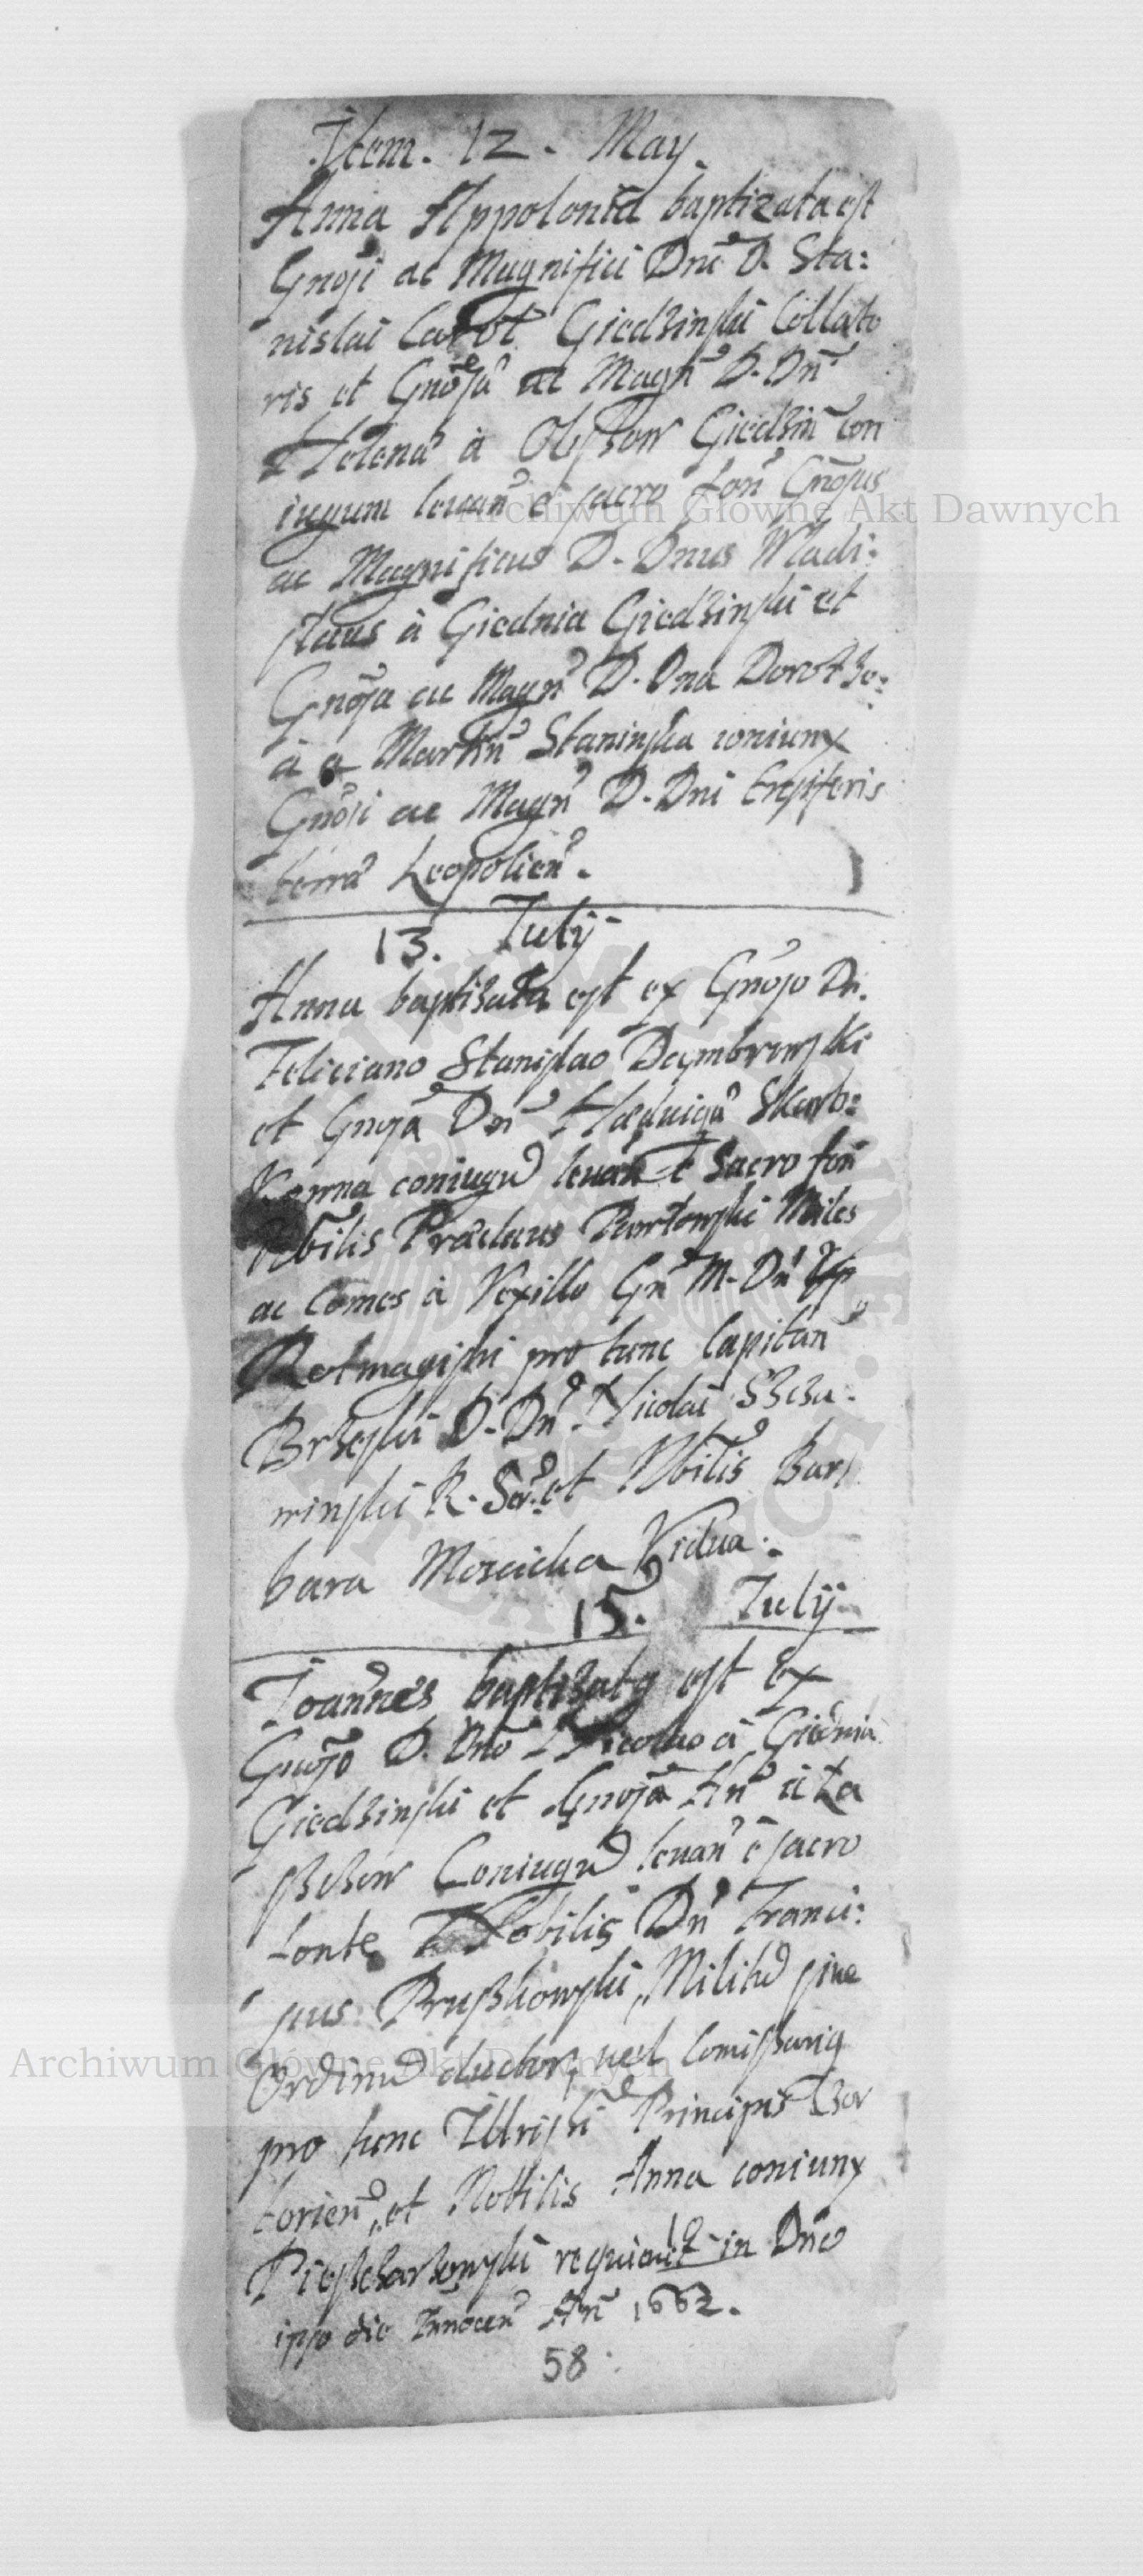 Item. 12. May.
Anna Appolonia baptizata est
Gnosi ac Magnifici Dni D. Sta:
nislai Carol Giedzinski Collato
ris et Gnosa ac Magn D. Dn
Helena à Giedzin Con
iugum levan è sacro fon Gnosus
ac Magnificus D. Dnus Wladi:
slaus à Giednia Giedzinski et
Gnosa ac Magn D. Dna Dorothe:
a a Martin Staninska coniunx
Gnosi ac Magn D. Dni Ensiferis
terra Leopolien.
13. Julÿ
Anna baptizata est ex Gnoso Dn.
Feliciano Stanislao Dembrowski
et Gnosa Dn Hedviga Skarb:
kowna coniugu levan è Sacro fon
Nobilis Miles
ac Comes à Vexillo Gn M. Dn
Rotmagistri pro tunc Capitan
Brzeski D. Dn Nicolai Szcza:
winski R. Ser. et Nobilis Bar
bara Moscicka Vidua.
15. Julÿ
Joannes baptizatq est Ex
Gnoso D. Dno Nicolao à Giednia
Giedzinski et Gnosa An
Coniugu levan è sacro
fonte Nobilis Dn Franci:
scus Pruszkowski, Militu sive
Ordinu ductor, vel Comissariq
pro tunc Illrissi Principis Czar
torien, et Nobilis Anna coniunx
requievit in Dno
ipso die Innocen An 1662.
58
Archiwum Główne Akt Dawnych
Archiwum Główne Akt Dawnych